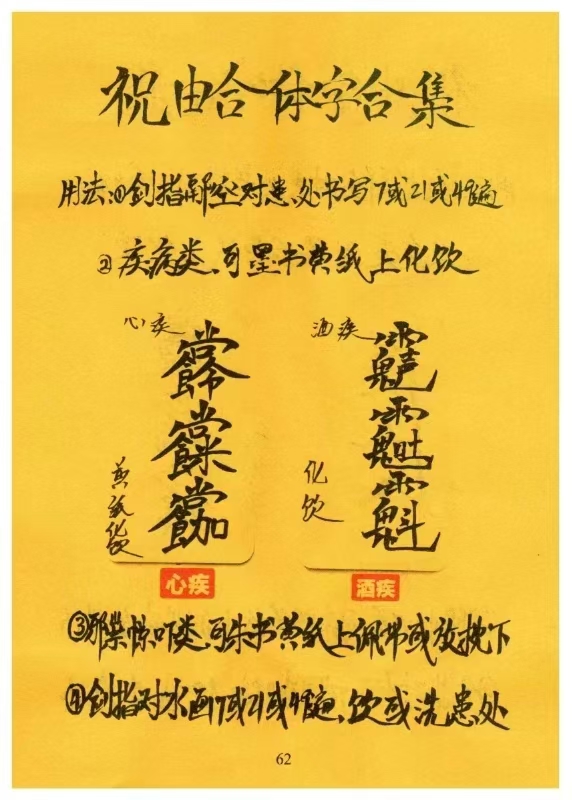 祝由合体字合集
用法:①剑指凌空对患处书写7或21或49遍
②疾病类、可墨书黄纸上化饮
心疾
黄纸化饮
心疾
酒疾
化饮
酒疾
③邪祟惊吓类、可朱书黄纸上佩带或放枕下
④剑指对水画7或21或49遍、饮或洗患处
62